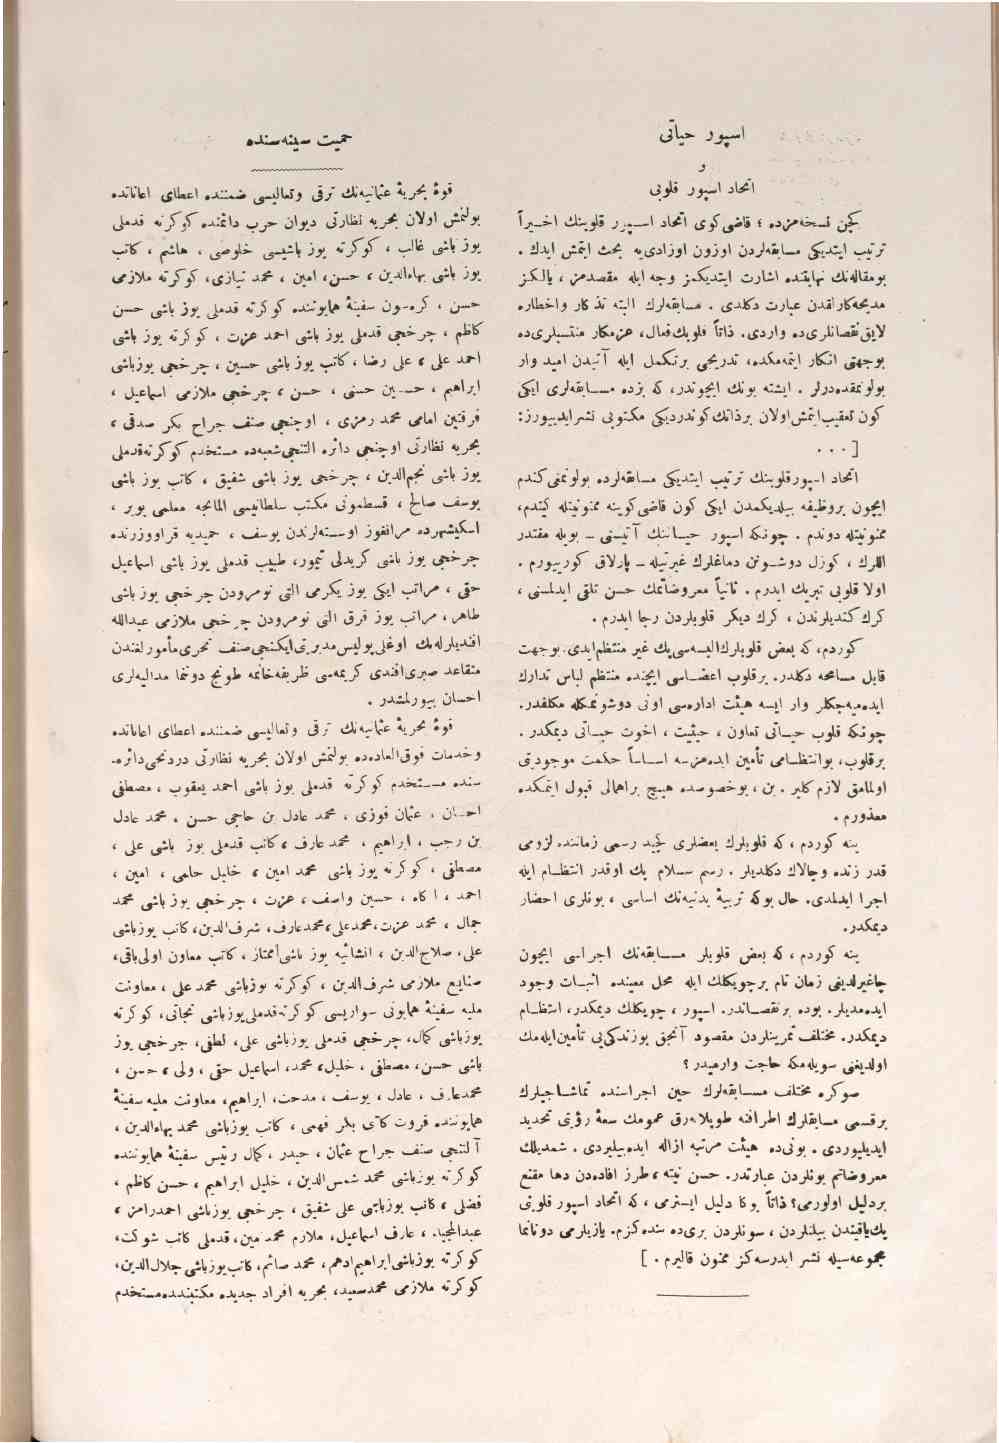 اسپور حیاتی
و
اتحاد اسپور قلوبی
کچن نسخه‌مزده ؛ قاضی کوی اتحاد اسپور قلوبنك اخیراً
ترتیب ایتدیکی مسابقه‌لردن اوزون اوزادی‌یه بحث ایتمش ایدك .
بومقاله‌نك نهایتنده اشارت ایتدیکمز وجه ایله مقصدمز ، یالکز
مدیحه‌کارلقدن عبارت دکلدی . مسابقه‌لرك البته تذکار واخطاره
لایق نقصانلری‌ده واردی . ذاتاً قلوبك فعال ، عزمکار منتسبلری‌ده
بوجهتی انکار ایتمه‌مکده ، تدریجی برتکمل ایله آتیدن امید وار
بولونمقده‌درلر . ایشته بونك ایچوندر ، که بزده مسابقه‌لری ایکی
کون تعقیب ایتمش اولان برذاتك کوندردیکی مکتوبی نشر ایدیورز :
[ . . .
اتحاد اسپور قلوبنك ترتیب ایتدیکی مسابقه‌لرده بولونمغی کندم
ایچون بروظیفه بیلدیکمدن ایکی کون قاضی کوینه ممنونیتله کیتدم ،
ممنونیتله دوندم . چونکه اسپور حیاتنك آتیسنی – بویله مقتدر
اللرك ، کوزل دوشونن دماغلرك غیرتیله – پارلاق کورییورم .
اولا قلوبی تبریك ایدرم . ثانیاً معروضاتمك حسن تلقی ایدلمسنی ،
كرك کندیلرندن ، كرك دیکر قلوبلردن رجا ایدرم .
کوردم ، که بعض قلوبلرك البسه‌سی پك غیر منتظم ایدی . بوجهت
قابل مسامحه دکلدر . برقلوب اعضاسی ایچنده منتظم لباس تدارك
ایده‌میه‌جکلر وار ایسه هیئت اداره‌سی اونی دوشونمکله مکلفدر .
چونکه قلوب حیاتی تعاون ، حیثیت ، اخوت حیاتی دیمکدر .
برقلوب ، بوانتظامی تأمین ایده‌مزسه اساساً حکمت موجودیتی
اولمامق لازم کلیر . بن ، بوخصوصده هیچ براهمالی قبول ایتمکده
معذورم .
ینه کوردم ، که قلوبلرك بعضلری کچید رسمی زماننده لزومی
قدر زنده وچالاك دکلدیلر . رسم سلام پك اوقدر انتظام ایله
اجرا ایدلمدی . حال بوکه تربیهٔ بدنیه‌نك اساسی ، بونلری احضار
دیمکدر .
ینه کوردم ، که بعض قلوبلر مسابقه‌نك اجراسی ایچون
چاغیرلدیغی زمان تام برچویکلك ایله محل معینده اثبات وجود
ایده‌مدیلر . بوده برنقصاندر . اسپور ، چویکلك دیمکدر ، انتظام
دیمکدر . مختلف تمرینلردن مقصود آنجق بوزنده‌کی‌یی تأمین ایله‌مك
اولدیغنی سویله‌مکه حاجت وارمیدر ؟
صوکره مختلف مسابقه‌لرك حین اجراسنده تماشاجیلرك
برقسمی مسابقلرك اطرافنه طوپلانه‌رق عمومك سعهٔ رؤیتی تحدید
ایدیلیوردی . بونی‌ده هیئت مرتبه ازاله ایده‌بیلیردی . شمدیلك
معروضاتم بونلردن عبارتدر . حسن نیته ، طرز افاده‌دن دها مقنع
بردلیل اولورمی ؟ ذاتاً بوکا دلیل ایسترمی ، که اتحاد اسپور قلوبنی
پك یاقیندن بیلنلردن ، سونلردن بری‌ده بنده‌کزم . یازیلرمی دونانما
مجموعه‌سیله نشر ایدرسه‌کز ممنون قالیرم . ]
حمیت سینه‌سنده
قوهٔ بحریهٔ عثمانیه‌نك ترقی وتعالیسی ضمننده اعطای اعاناتده
بولنمش اولان بحریه نظارتی دیوان حرب دائمنده کوکرته قدملی
یوز باشی غالب ، کوکرته یوز باشیسی خلوصی ، هاشم ، کاتب
یوز باشی بهاءالدین ، حسن ، امین ، محمد نیازی ، کوکرته ملازمی
حسن ، کره‌سون سفینهٔ همایوننده کوکرته قدملی یوز باشی حسن
کاظم ، چرخجی قدملی یوز باشی احمد عزت ، کوکرته یوز باشی
احمد علی ، علی رضا ، کاتب یوز باشی حسین ، چرخجی یوزباشی
ابراهیم ، حسین حسنی ، حسن ، چرخجی ملازمی اسماعیل ،
فرقتین امامی محمد رمزی ، اوچنجی صنف جراح بکر صدقی ،
بحریه نظارتی اوچنجی دائره آلتنجی شعبه‌ده مستخدم کوکرته قدملی
یوز باشی نجم‌الدین ، چرخجی یوز باشی شفیق ، کاتب یوز باشی
یوسف صالح ، قسطمونی مکتب سلطانیسی المانجه معلمی بویر ،
اسکیشهرده مرانغوز اوسته‌لرندن یوسف ، حمیدیه قرووزرنده
چرخجی یوز باشی کریدلی تیمور ، طبیب قدملی یوز باشی اسماعیل
حقی ، مراتب ایکی یوز یکرمی التی نومرودن چرخجی یوز باشی
طاهر ، مراتب یوز قرق التی نومرودن چرخجی ملازمی عبدالله
افندیلرله‌بك اوغلی پولیس مدیریتی ایکنجی صنف تحری مأمورلغندن
متقاعد صبری افندی کریمه‌سی ظریفه‌خانمه طونج دوننما مدالیه‌لری
احسان بیورلمشدر .
قوهٔ بحریهٔ عثمانیه‌نك ترقی وتعالیسی ضمننده اعطای اعاناتده
وخدمات فوق‌العاده‌ده بولنمش اولان بحریه نظارتی دردنجی دائره‌-
سنده مستخدم کوکرته قدملی یوز باشی احمد یعقوب ، مصطفی
احسان ، عثمان فوزی ، محمد عادل بن حاجی حسن ، محمد عادل
بن رجب ، ابراهیم ، محمد عارف ، کاتب قدملی یوز باشی علی ،
مصطفی ، کوکرته یوز باشی محمد امین ، خلیل حامی ، امین ،
احمد ، آکاه ، حسین واصف ، عزت ، چرخجی یوز باشی محمد
جمال ، محمد عزت ، محمدعلی ، محمدعارف ، شرف‌الدین ، کاتب یوزباشی
علی ، صلاح‌الدین ، انشائیه یوز باشی ممتاز ، کاتب معاون اولی باقی ،
صنایع ملازمی شرف‌الدین ، کوکرته یوزباشی محمد علی ، معاونت
ملیه سفینهٔ همایونی سواریسی کوکرته قدملی یوزباشی نجاتی ، کوکرته
یوزباشی کمال ، چرخجی قدملی یوزباشی علی ، لطفی ، چرخجی یوز
باشی حسن ، مصطفی ، خلیل ، محمد ، اسماعیل حقی ، ولی ، حسن ،
محمدعارف ، عادل ، یوسف ، مدحت ، ابراهیم ، معاونت ملیه سفینهٔ
همایوننده قروت کاتبی بکر فهمی ، کاتب یوزباشی محمد بهاءالدین ،
آلتنجی صنف جراح عثمان ، حیدر ، کمال رئیس سفینهٔ همایوننده
کوکرته یوزباشی محمد شمس‌الدین ، خلیل ابراهیم ، حسن کاظم ،
فضلی ، کاتب یوزباشی علی شفیق ، چرخجی یوزباشی احمدرامز ،
عبدالمجید ، عارف اسماعیل ، ملازم محمد مین ، قدملی کاتب شوکت ،
کوکرته یوزباشی ابراهیم ادهم ، محمد صائم ، کاتب یوزباشی جلال‌الدین ،
کوکرته ملازمی محمدسعید ، بحریه افراد جدیده مکتبنده مستخدم